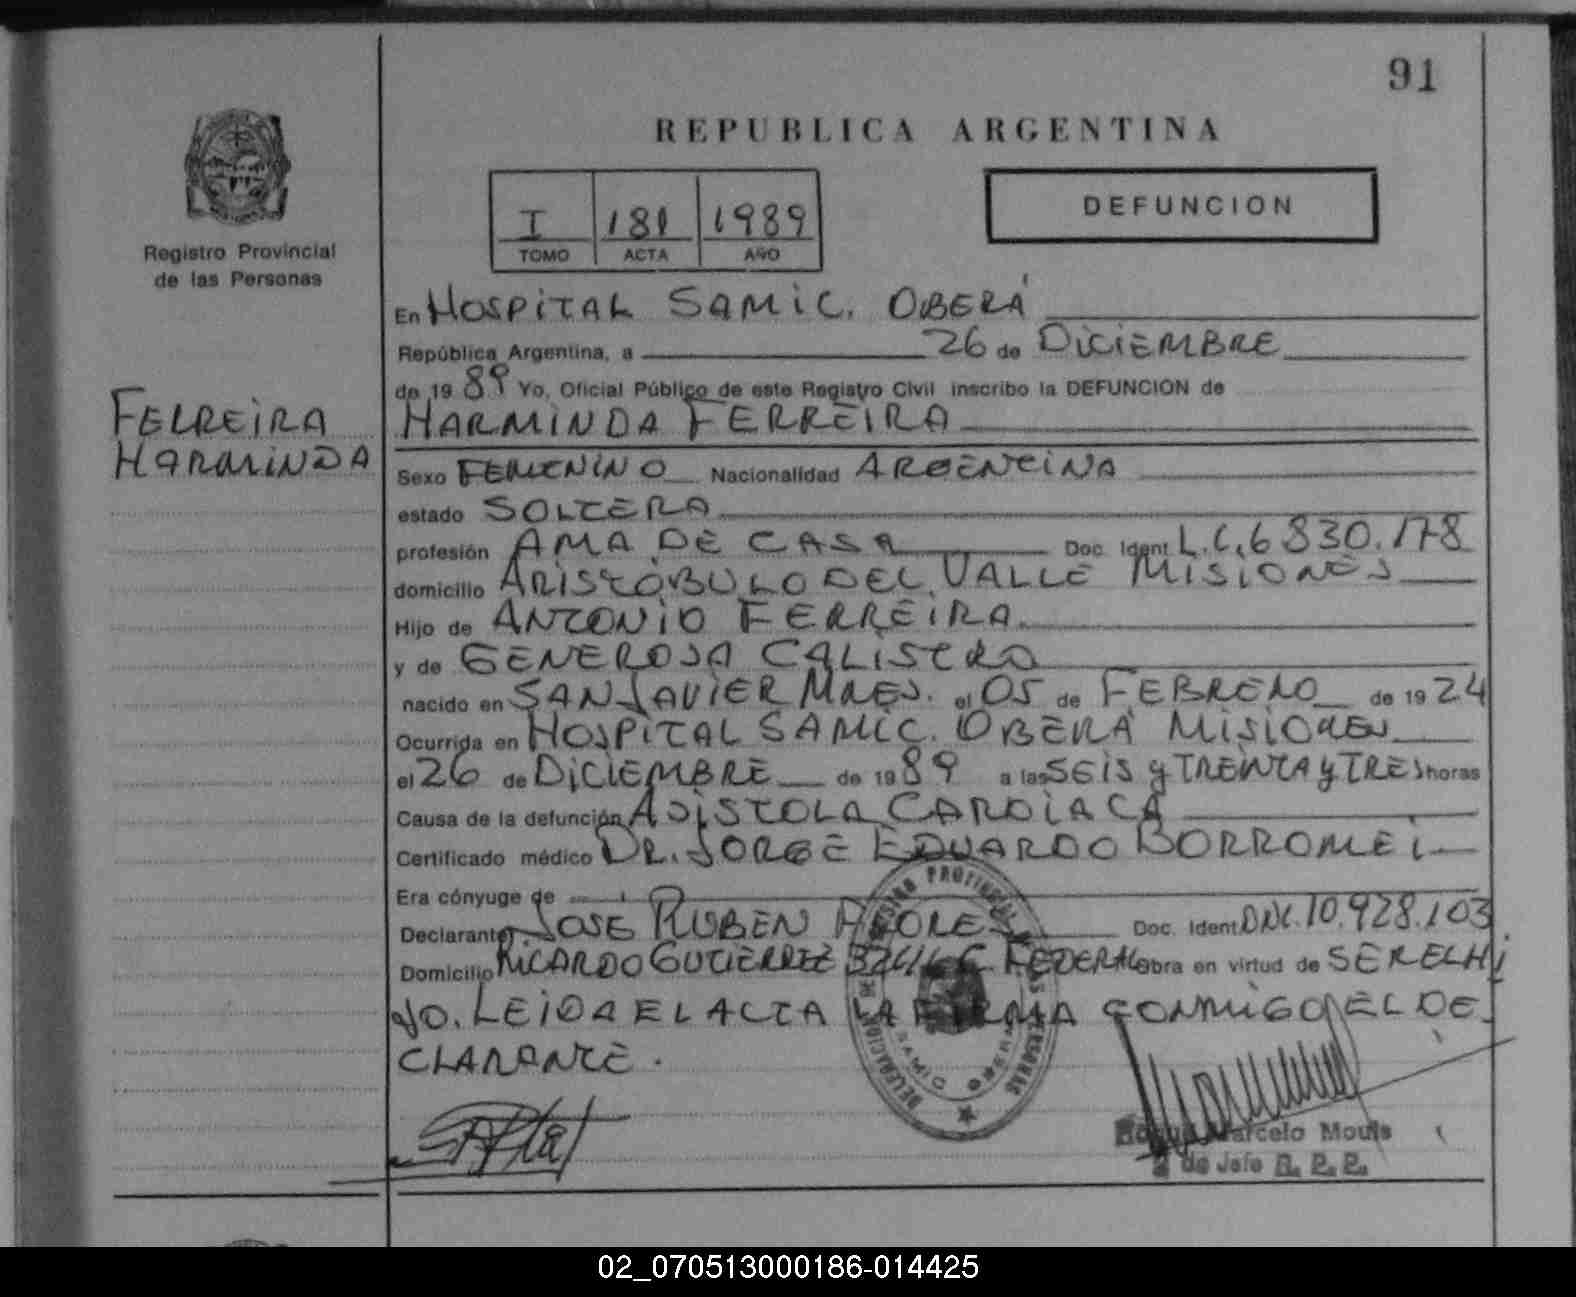 91
REPUBLICA ARGENTINA
I 181 1989
TOMO ACTA AÑO
DEFUNCION
Registro Provincial
de las Personas
FERREIRA
HARMINDA
En HOSPITAL SAMIC. OBERÁ
República Argentina, a 26 de DICIEMBRE
de 1989 Yo, Oficial Público de este Registro Civil inscribo la DEFUNCION de
HARMINDA FERREIRA
Sexo FEMENINO Nacionalidad ARGENTINA
estado SOLTERA
profesión AMA DE CASA Doc. Ident L.C. 6830.178
domicilio ARISTÓBULO DEL VALLE MISIONES
Hijo de ANTONIO FERREIRA
y de GENEROSA CALISTRO
nacido en SAN JAVIER MNES. el 05 de FEBRERO de 1924
Ocurrida en HOSPITAL SAMIC. OBERÁ MISIONES
el 26 de DICIEMBRE de 1989 a las SEIS y TREINTA y TRES horas
Causa de la defunción ASISTOLA CARDIACA
Certificado médico DR. JORGE EDUARDO BORROMEI
Era cónyuge de
Declarante JOSE RUBEN Doc. Ident DNI. 10.928.103
Domicilio RICARDO GUTIERREZ FEDERAL obra en virtud de SER EL HI
JO. LEIDA EL ACTA LA FIRMA CONMIGO EL DE
CLARANTE.
DELEGACION REGISTRO PROVINCIAL DE LAS PERSONAS
Marcelo Mouls
de Jefe R. P. P.
02_070513000186-014425